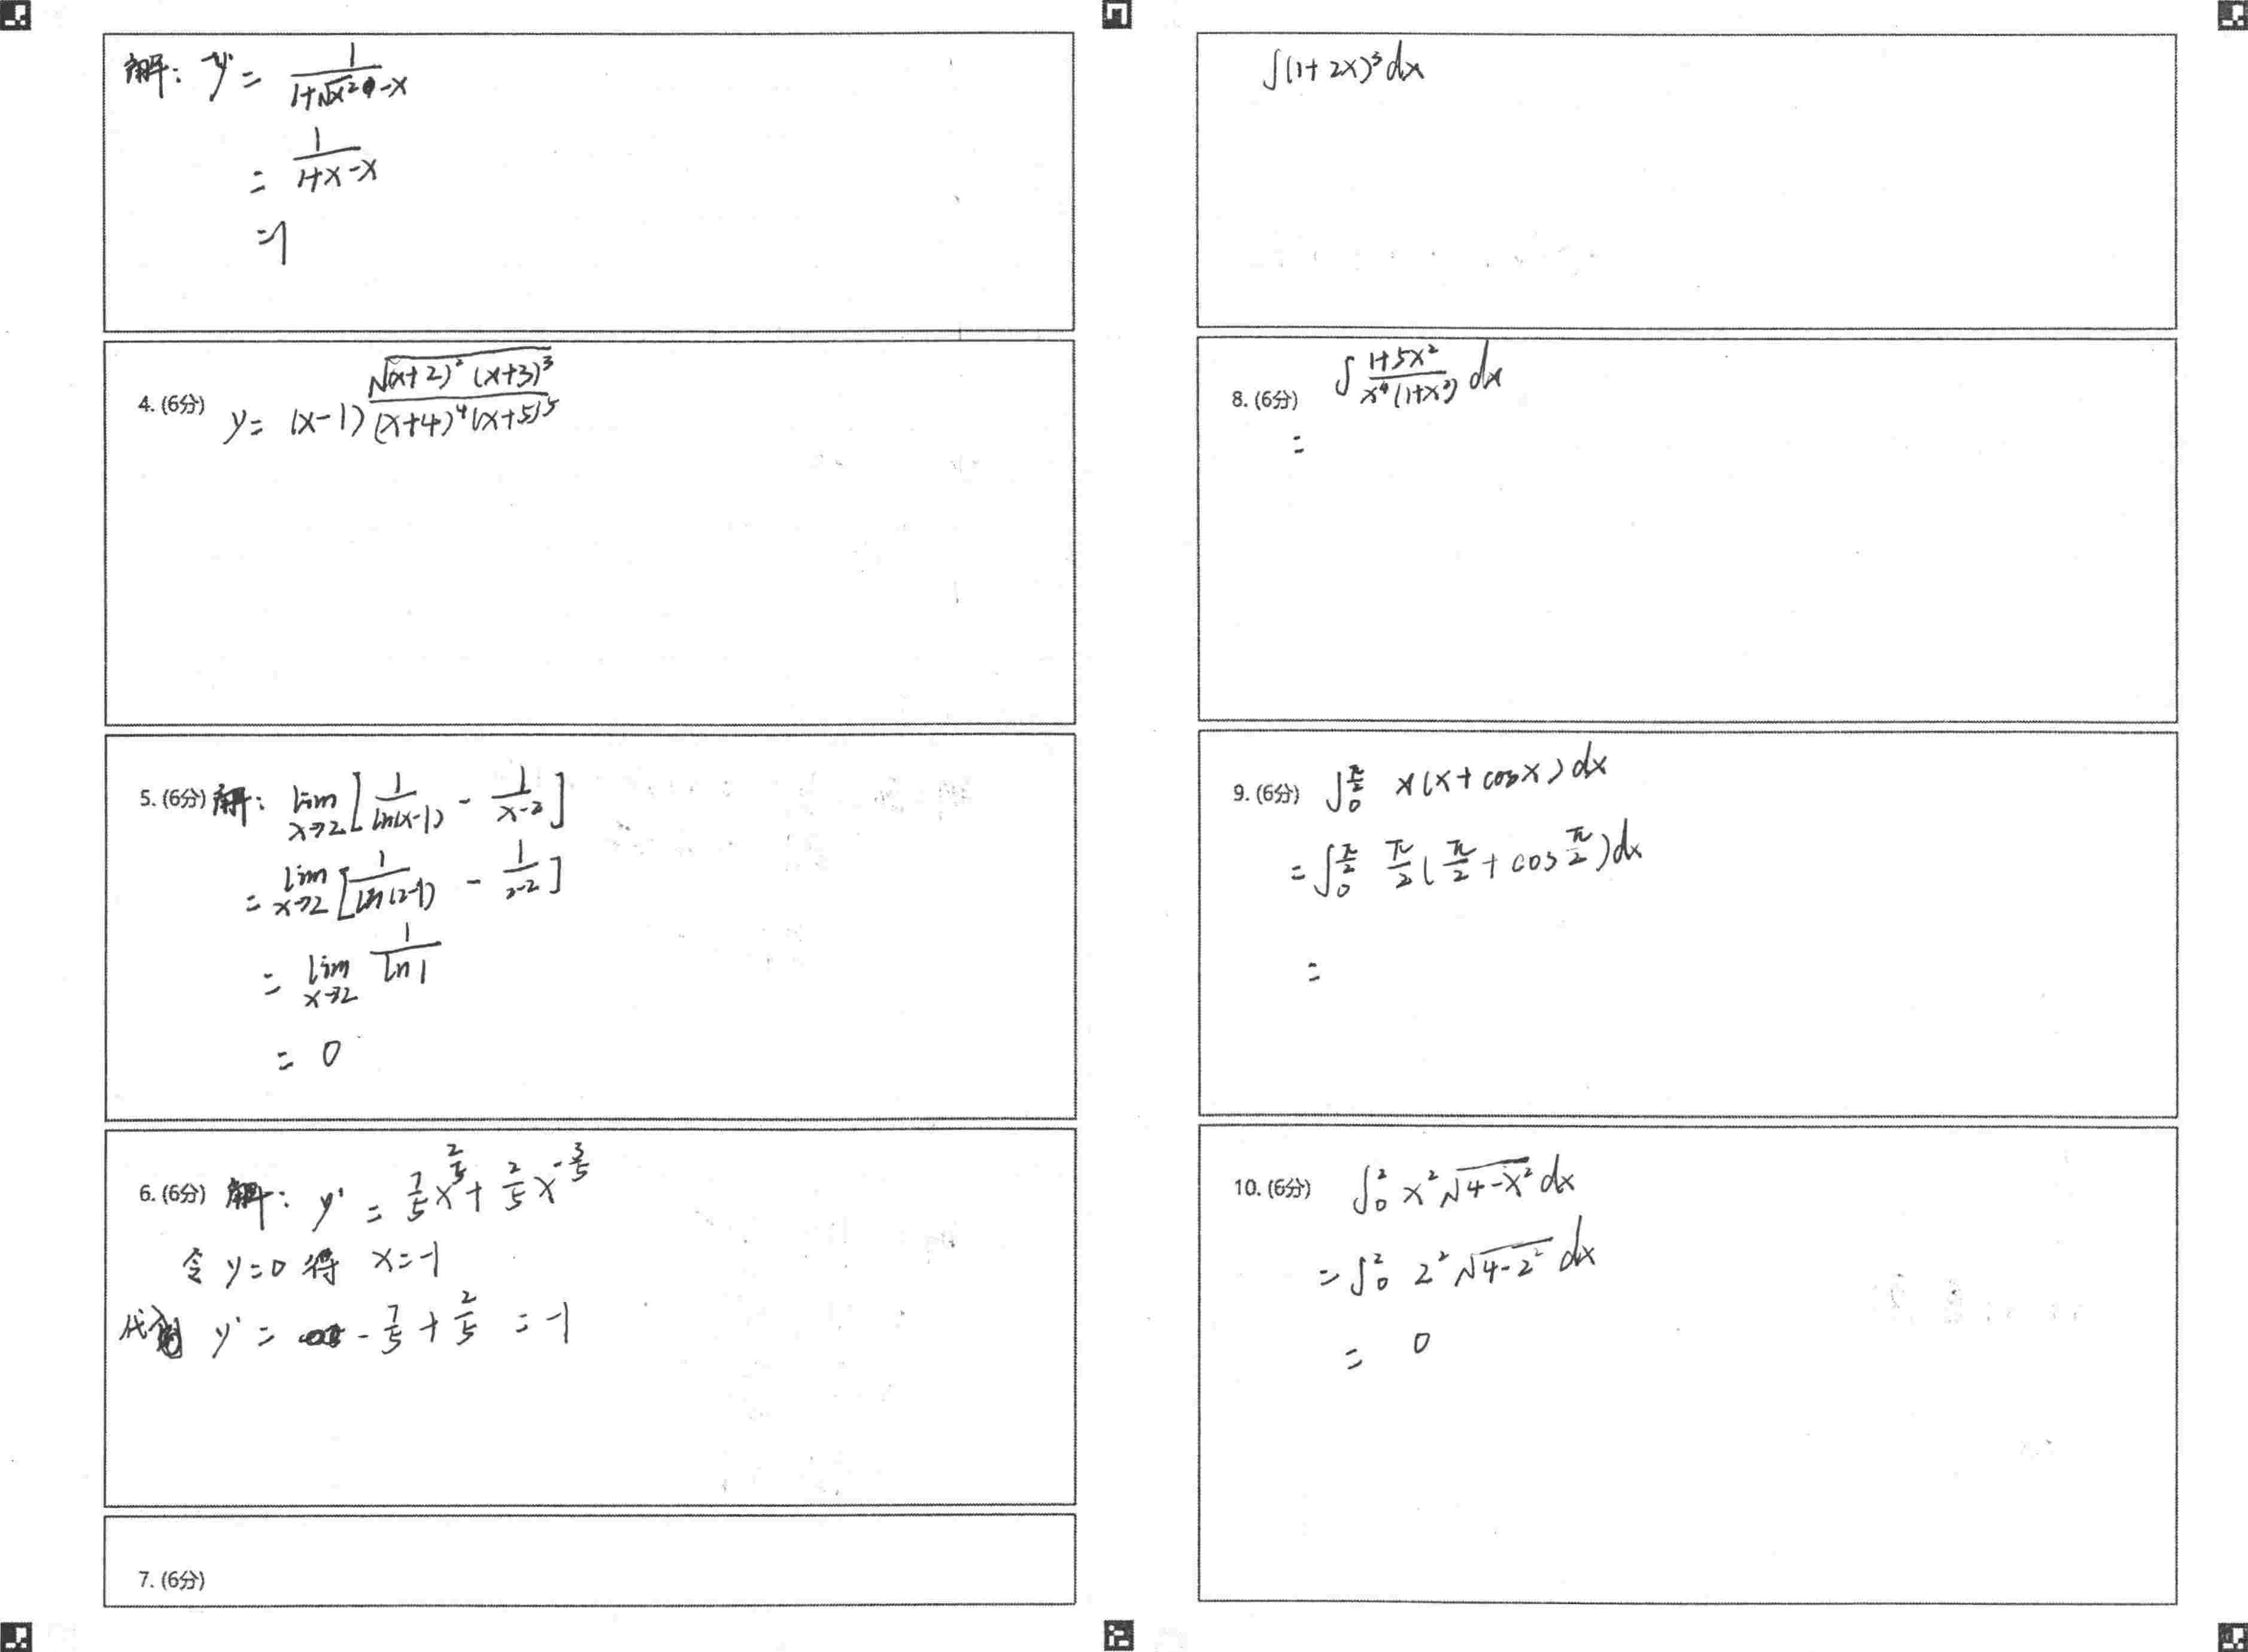 解: y' = 1/(1+√x² -x)
= 1/(1+x-x)
=1
4. (6分) y = (x-1) √((x+2)² (x+3)³)/((x+4)⁴(x+5)⁵)
5. (6分) 解: lim x→2 [1/ln(x-1) - 1/(x-2)]
= lim x→2 [1/ln(2-1) - 1/(2-2)]
= lim x→2 1/ln1
= 0
6. (6分) 解: y' = 7/5 x^(2/5) + 2/5 x^(-3/5)
令 y=0 得 x=-1
代 y' = -7/5 + 2/5 = -1
7. (6分)
∫(1+2x)³dx
8. (6分) ∫ (1+5x²)/(x⁴(1+x²)) dx
=
9. (6分) ∫₀^(π/2) x(x+cosx)dx
= ∫₀^(π/2) π/2(π/2+cos π/2)dx
=
10. (6分) ∫₀² x²√(4-x²) dx
= ∫₀² 2²√(4-2²) dx
= 0